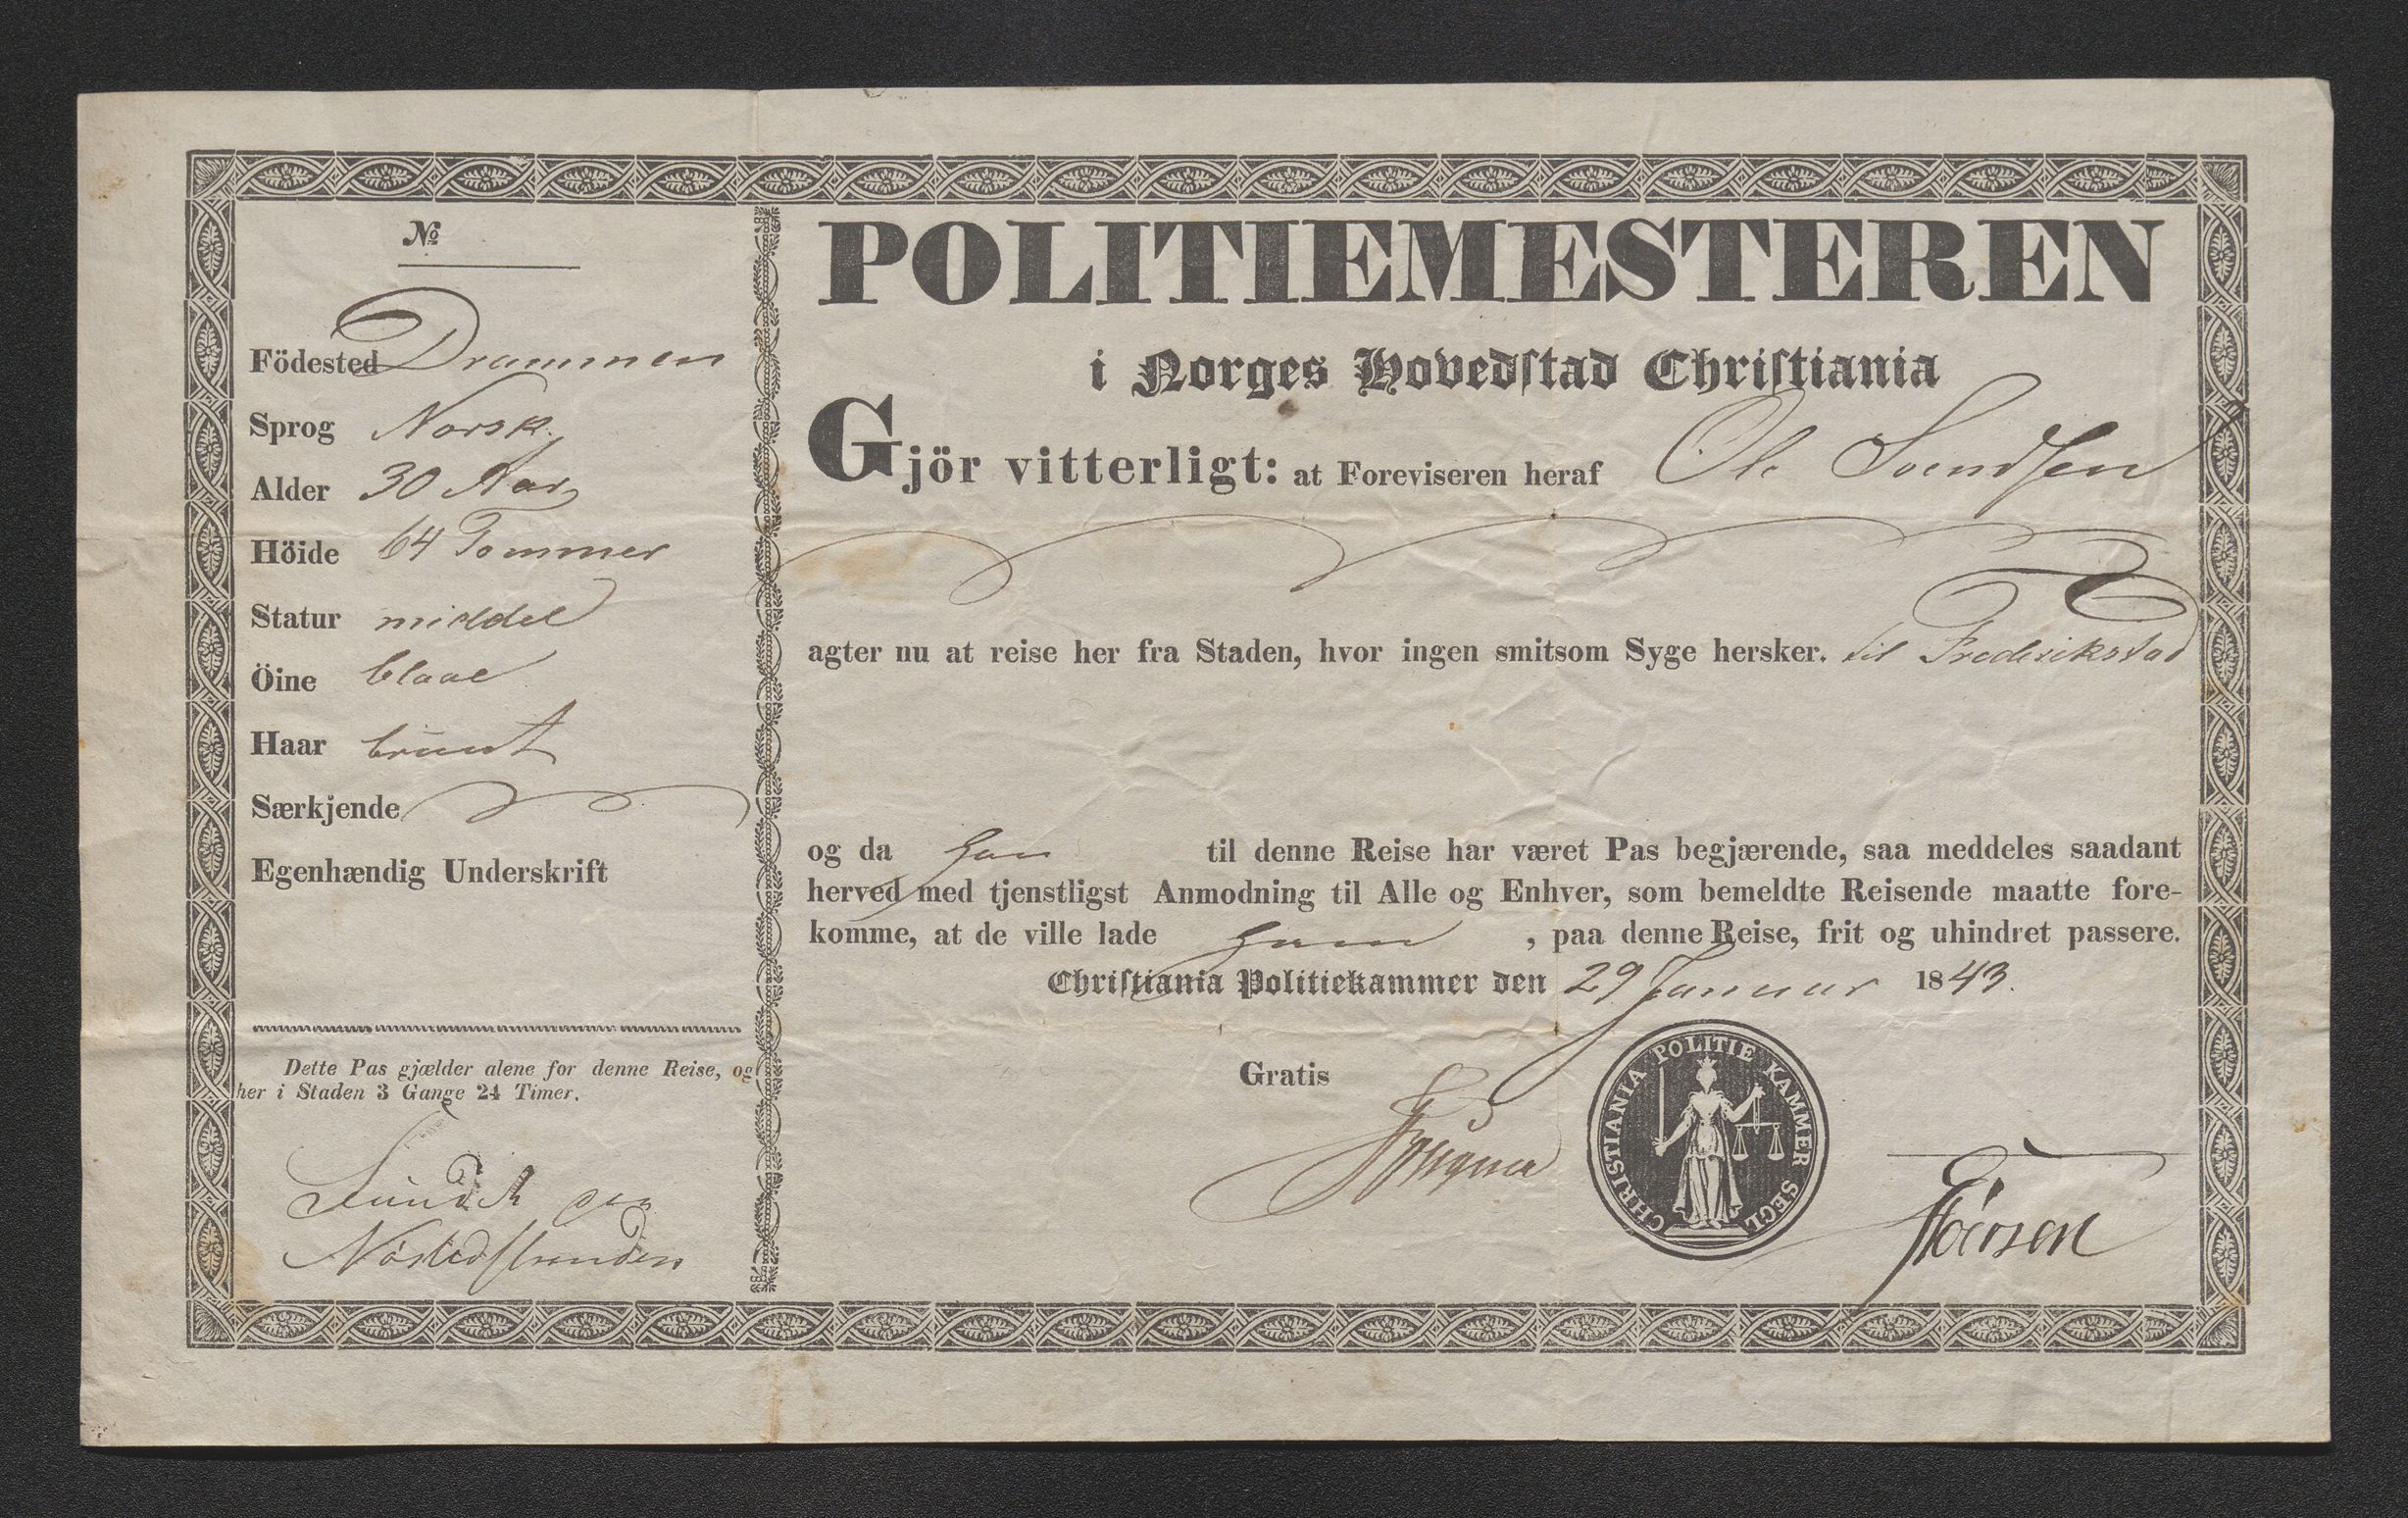 No
Födested Drammen
Sprog Norsk.
Alder 30 Aar
Höide 64 Tommer
Statur middel
Öine blaae
Haar bruunt
Særkjende
Egenhændig Underskrift
Dette Pas gjælder alene for denne Reise, og
her i Staden 3 Gange 24 Timer.
paa
POLITIEMESTEREN
i Norges Hovedstad Christiania
Gjör vitterligt: at Foreviseren heraf Ole Svendsen
agter nu at reise her fra Staden, hvor ingen smitsom Syge hersker. til Frederikstad
og da han til denne Reise har været Pas begjærende, saa meddeles saadant
herved med tjenstligst Anmodning til Alle og Enhver, som bemeldte Reisende maatte fore-
komme, at de ville lade ham, paa denne Reise, frit og uhindret passere.
Christiania Politiekammer den 29 Januar 1843.
Gratis
CHRISTIANIA POLITIE KAMMER SEGL